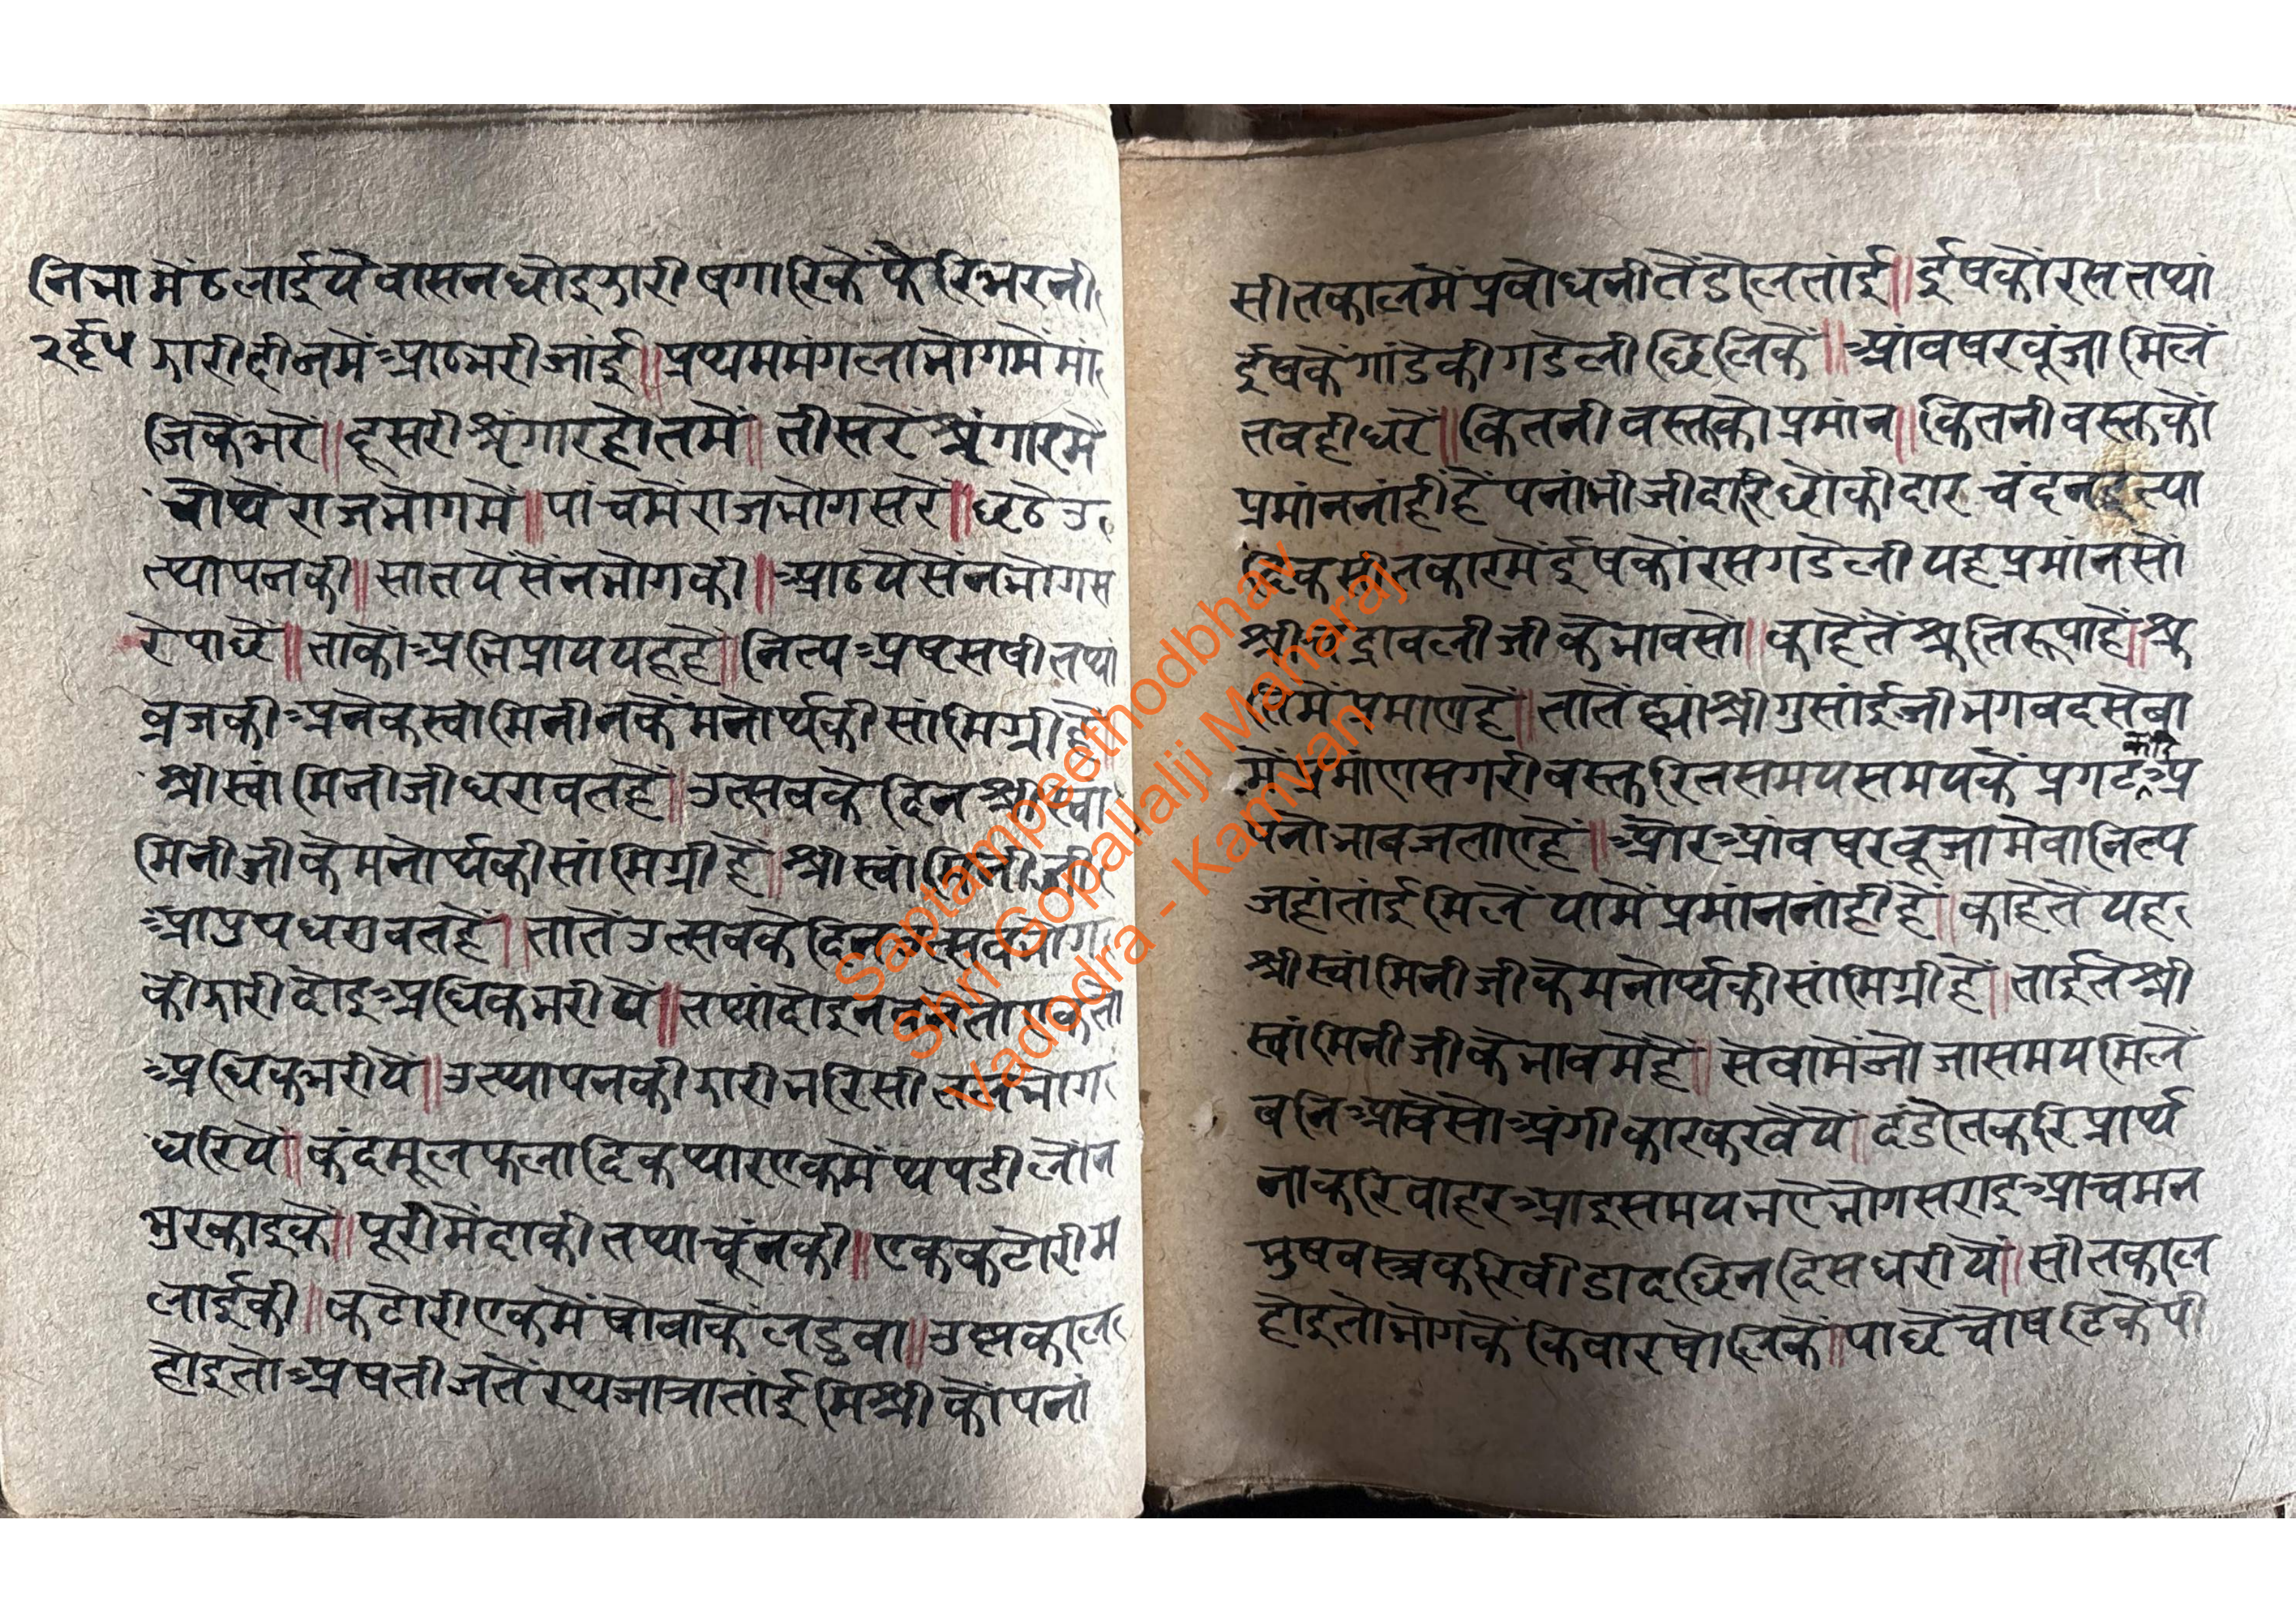 नि भा मेंठलाईयै वासन धोइ झारी षगारिकें फैरि भरनी
२र्ह्५ झारी दीनमें आठ भरी जांई॥ प्रथम मंगला भोगमें मां
जिकें भरें॥ दूसरी श्रृंगार होतमें॥ तीसरें श्रृंगारमें
चौथें राजभोगमें॥ पांचमें राजभोग सरें॥ छठे उ
त्थापनकी॥ सातयें सेंनभोगकी॥ आठयें सेंनभोग स
रे पाछें॥ ताकौ अभिप्राय यह हैं॥ नित्य अष्टसषी तथां
व्रजकी अनेक स्वामिनीनकें मनोर्थकी सांमिग्री हैं
श्रीस्वांमिनीजी धरावत हैं॥ उत्सवकें दिन श्रीस्वां
मिनीजीकें मनोर्थकी सांमिग्री हैं॥ श्रीस्वांमिनीजी
आपुय धरावत हैं॥ तातें उत्सवकें दिन उत्सवभोग
की झारी दोइ अधिक भरीयें॥ तथां दोइ न
अधिक भरीयें॥ उत्थापनकी झारी भरि सीतल भोग
धरियें॥ कंदमूल फलादिक थार एकमें थपडी लोंन
भुरकाइकें॥ पूरी मेंदाकी तथा चूंनकी॥ एक कटोरी म
लाईकी॥ कटोरी एकमें षोवाकें लडुवा॥ उष्णकाल
होइ तो अषतीजतें रथजात्रा तांई मिश्रीकौ पनां
सीतकालमें प्रबोधनीतें डोल तांई॥ ईषकौ रस तथां
ईषकें गांडेकी गडेली छिलिकें॥ आंब षरबूंजा मिलें
तबही धरें॥ कितनी वस्तकौ प्रमांन॥ कितनी वस्तकौं
प्रमांन नांहीं हैं पनां भीजी दारि छोंकी दार चंदन इत्या
दिक सीतकारमें ईषकौ रस गडेली यह प्रमांन सों
श्रीचंद्रावलीजीकें भावसों॥ काहेतें श्रुतिरूपा हैं॥ श्रु
तिमें प्रमाण हैं॥ तातें ह्यां श्रीगुसांईजी भगवदसेवा
में प्रमांण सगरी वस्त रितसमय समयकें प्रगट करि अ
पनो भाव जताए हैं॥ और आंब षरबूजा मेवा नित्य
जहां तांई मिलें यामें प्रमांन नांहीं हैं॥ काहेतें यह
श्रीस्वांमिनीजीकें मनोर्थकी सांमिग्री हैं॥ ताईतें श्री
स्वांमिनीजीकें भावमें हैं॥ सेवामें जो जासमय मिलें
बनि आवें सो अंगीकार करवैयें॥ दंडोत करि प्रार्थ
ना करि बाहर आइ समय भए भोग सराइ आचमन
मुषवस्त्र करि बीडा दछिन दिस धरीयें॥ सीतकाल
होइ तो भोगकें किवार षोलिकें॥ पाछें चोषटिकें पी
Saptampeethodbhav
Shri Gopallalji Maharaj
Vadodra - Kamvan